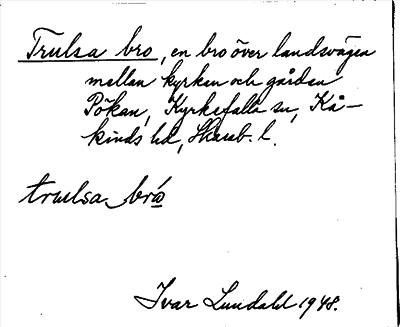 Trulsa bro, en bro över landsvägen
mellan kyrkan och gården
Pökan, Kyrkefalla sn, Kå-
kinds hd, Skarab. l.
trulsa bró
Ivar Lundahl 1948.